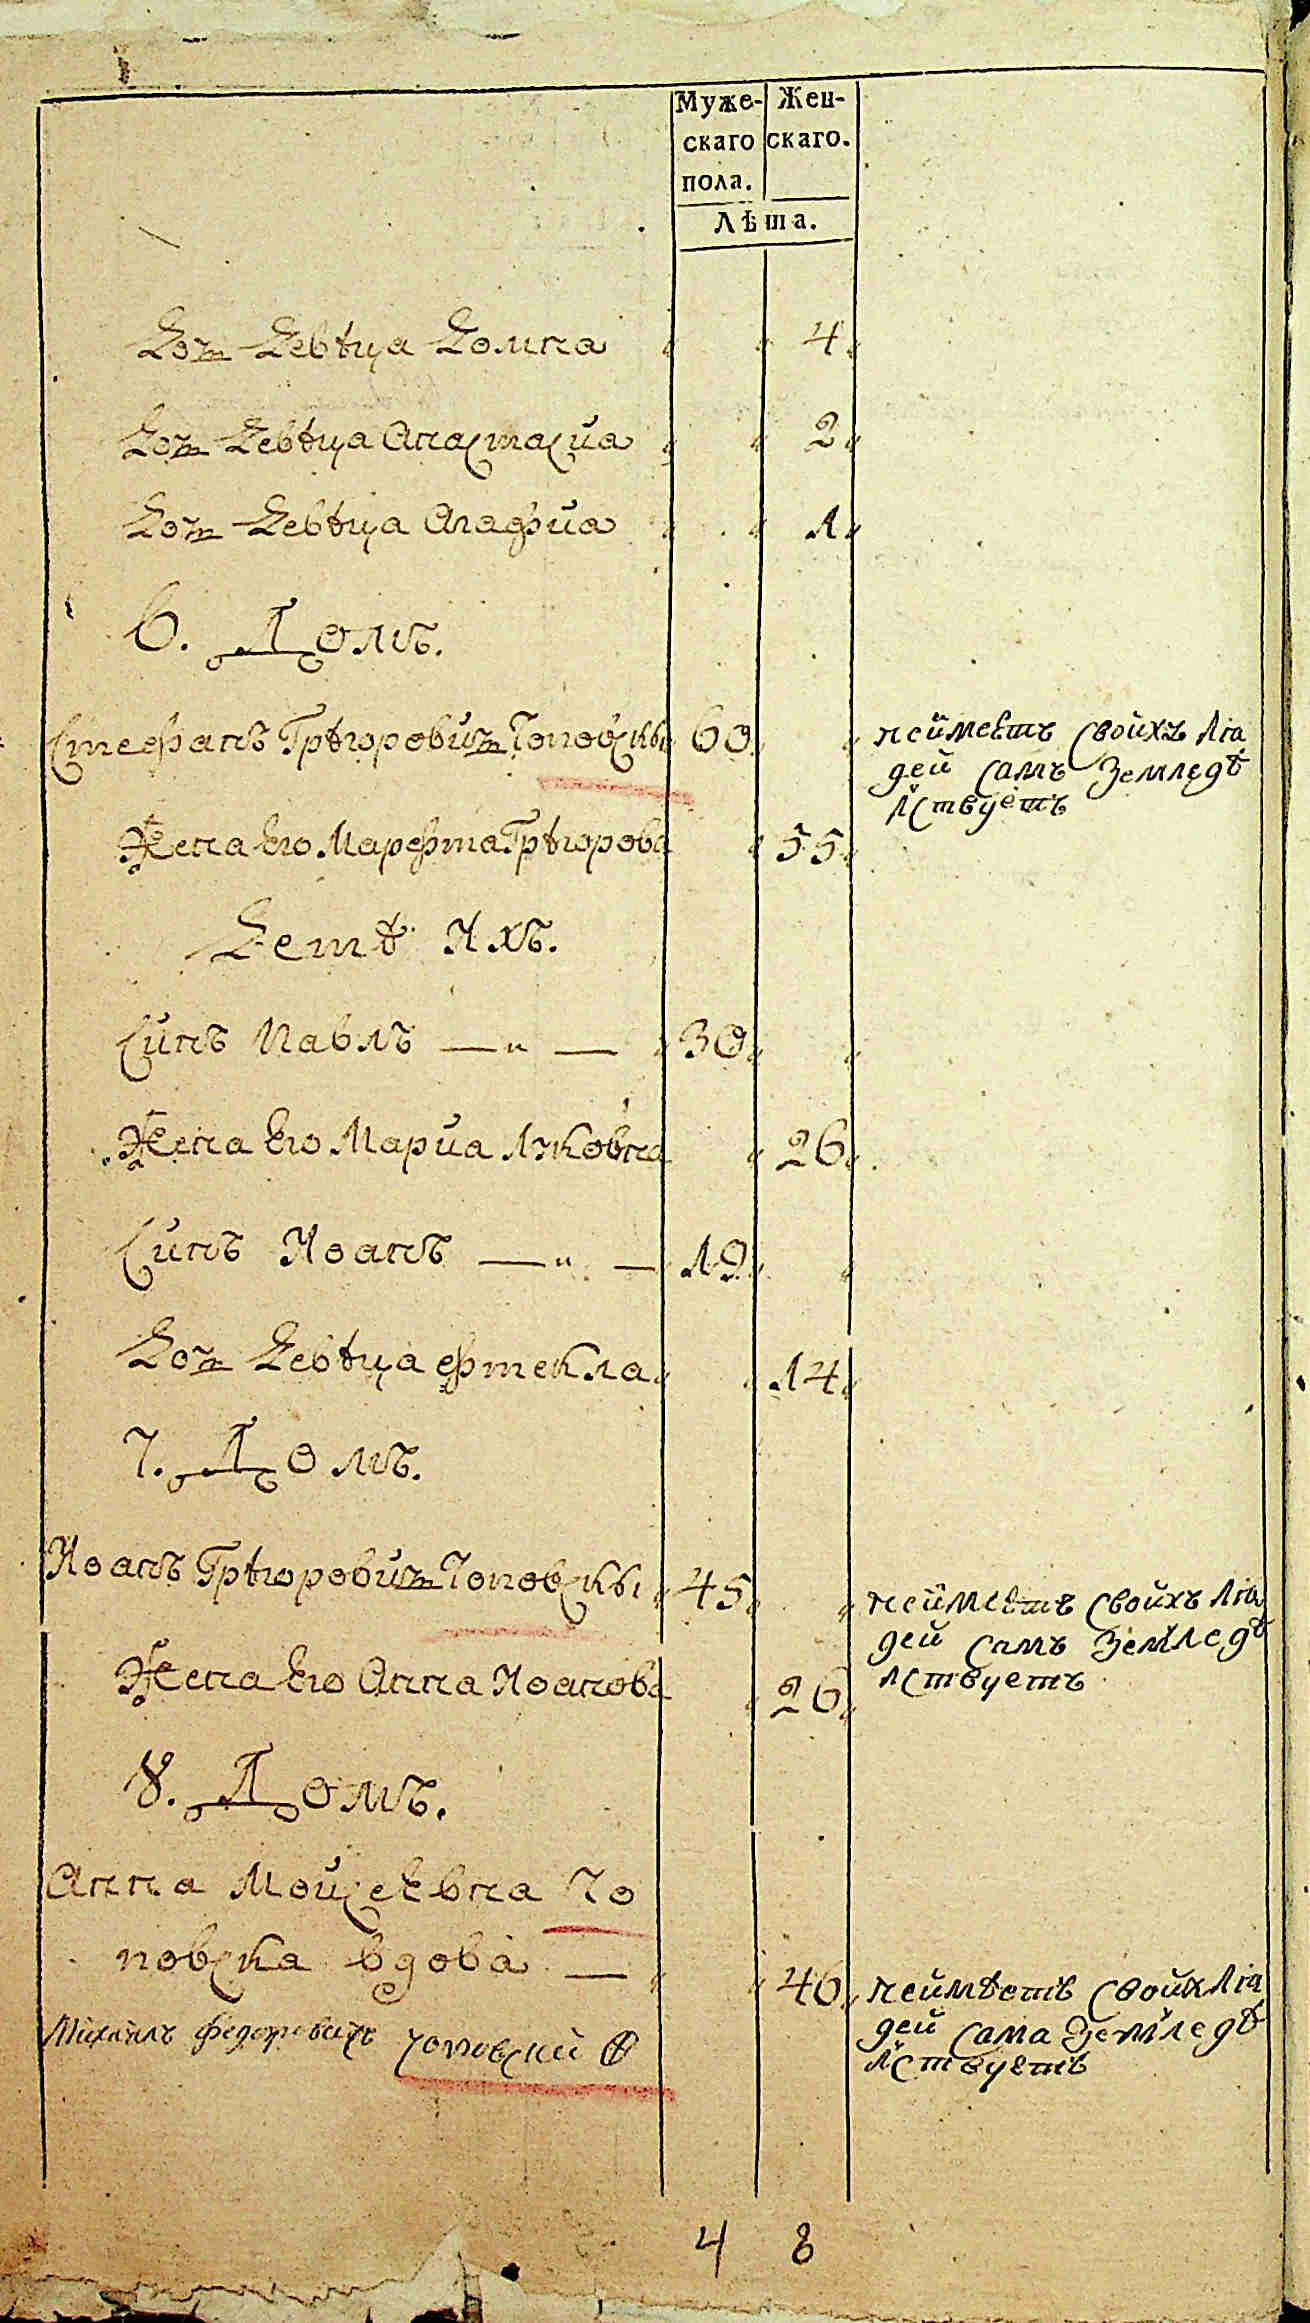 Муже-
скаго
пола.
Жен-
скаго.
Лѣта.
Доч Девѣца Домна 4
Доч Девѣца Анастасиа 2
Доч Девѣца Агафиа 1
6. Домъ.
Стефанъ Грѣгоровичъ Чоповскы 60
неймеетъ Свойхъ Лю
дей Самъ Землѣдѣ
лствуетъ
Жена Его Марефта Грѣгорова 55
Детѣ Ихъ.
Синъ Павлъ 30
Жена Его Мариа Луковна 26
Синъ Иоанъ 19
Доч Девѣца Фтекла 14
7. Домъ.
Иоанъ Грѣгоровичъ Чоповскы 45
неймеетъ Свойхъ Лю
дей Самъ Земледѣ
лствуетъ
Жена Его Анна Иоанова 26
8. Домъ.
Анна Мойсеевна Чо
повска вдова 46
неймѣетъ Свойх Лю
дей Сама Земледѣ
лствуетъ
Михаилъ Федоровичъ Чоповский
4 8